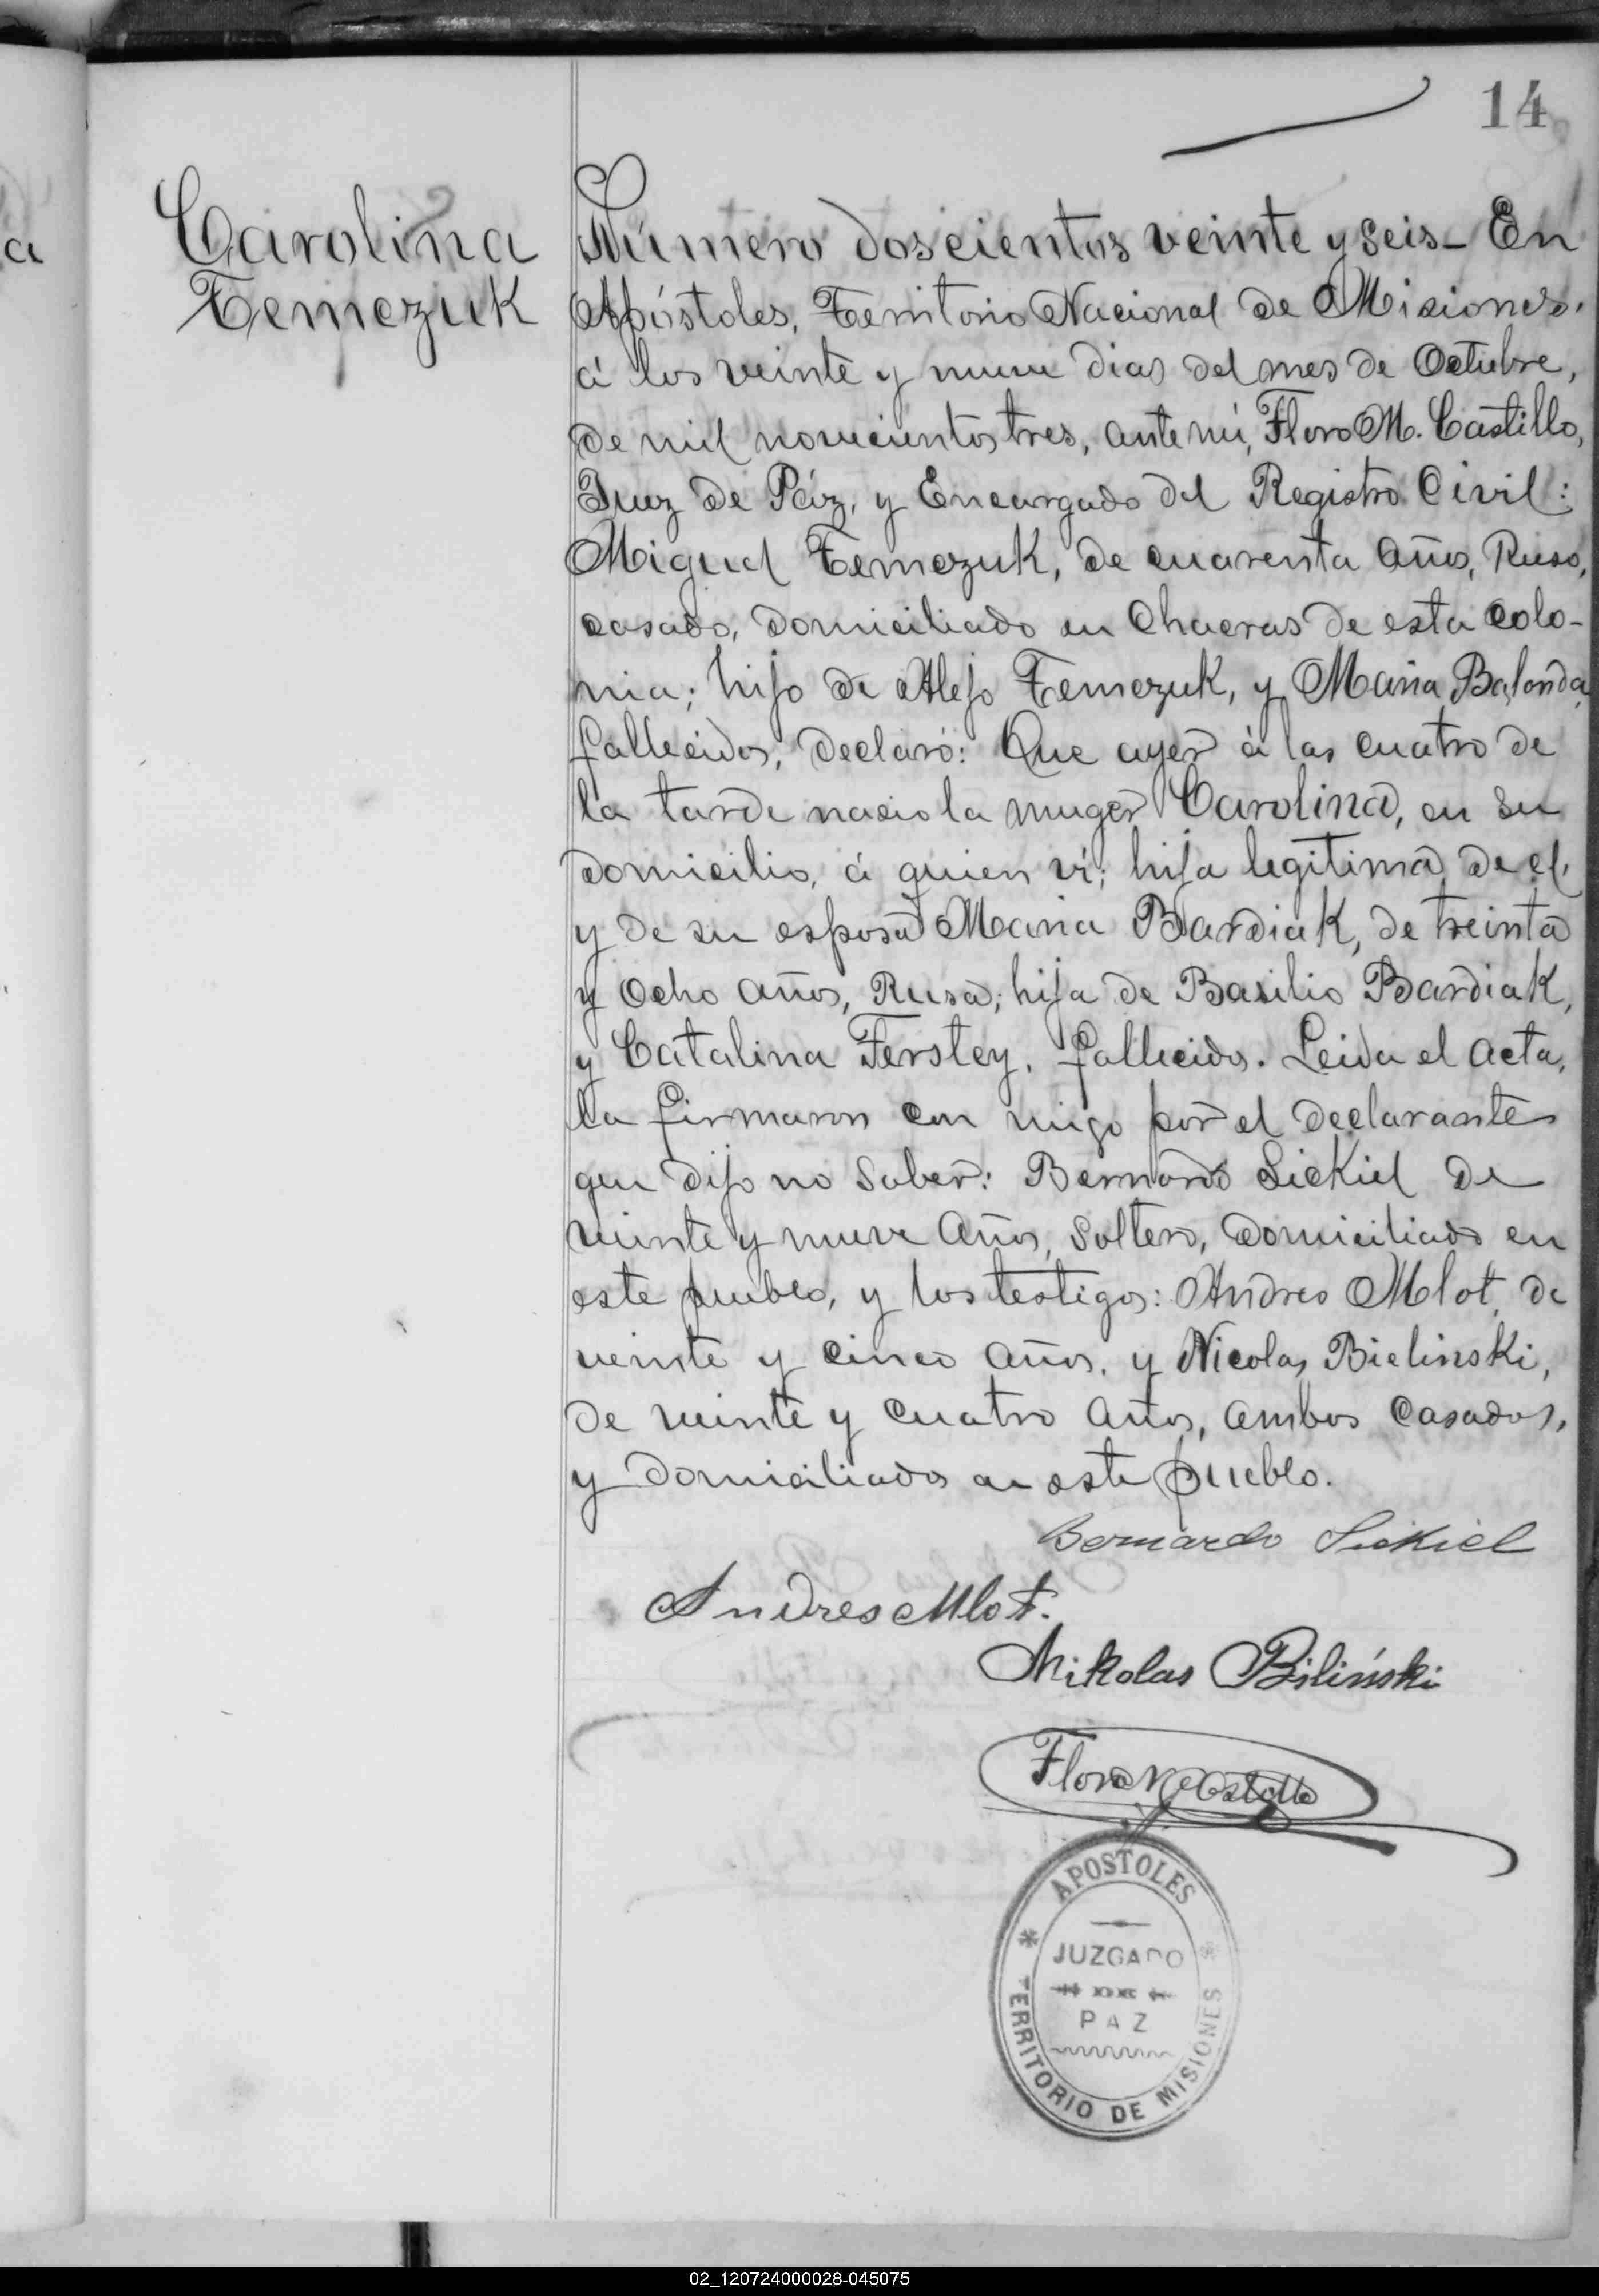 14
a
Carolina
Temczuk
Número doscientos veinte y seis - En
Apóstoles, Territorio Nacional de Misiones,
á los veinte y nueve dias del mes de Octubre,
de mil novecientos tres, ante mi, Floro M. Castillo,
Juez de Páz, y Encargado del Registro Civil:
Miguel Temczuk, de cuarenta años, Ruso,
casado, domiciliado en Chacras de esta colo-
nia; hijo de Alejo Temczuk, y Maria Balonda,
fallecidos, declaró: Que ayer á las cuatro de
la tarde nacio la muger Carolina, en su
domicilio, á quien ví; hija legitima de el,
y de su esposa Maria Bardiak, de treinta
y ocho años, Rusa; hija de Basilio Bardiak,
y Catalina Ferstey, fallecidos. Leida el acta,
la firmaron con migo por el declarante
que dijo no saber: Bernardo Siekiel de
veinte y nueve años, soltero, domiciliado en
este pueblo, y los testigos: Andres Mlot, de
veinte y cinco años, y Nicolas Bielinski,
de veinte y cuatro años, ambos casados,
y domiciliados en este pueblo.
Bernardo Siekiel
Andres Mlot.
Mikolas Biliński
Floro M. Castillo
APOSTOLES
JUZGADO
PAZ
TERRITORIO DE MISIONES
02_120724000028-045075